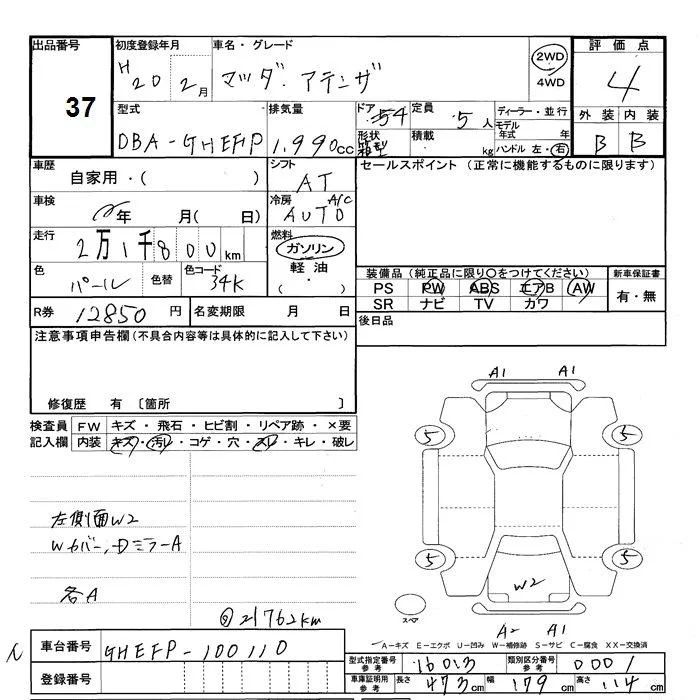 出品番号 初度登録年月 車名・グレード 評価点
37 H20 2月 マツダ・アテンザ 2WD 4WD 4
型式 排気量 ドア 54 定員 5人 ディーラー・並行 外装 内装
DBA-GHEFP 1.990cc 形状 箱型 積載 kg モデル年式 年 ハンドル 左・右 B B
車歴 自家用・( ) シフト AT セールスポイント (正常に機能するものに限ります)
車検 年 月( 日) 冷房 A/C AUTO
走行 2万1千800km 燃料 ガソリン
軽油
色 パール 色替 色コード 34K ・ 装備品 (純正品に限り○をつけてください) 新車保証書
PS PW ABS エアB AW 有・無
R券 12850円 名変期限 月 日 SR ナビ TV カワ
注意事項申告欄 (不具合内容等は具体的に記入して下さい) 後日品
修復歴 有 〔箇所 〕
検査員 FW キズ・飛石・ヒビ割・リペア跡・×要
記入欄 内装 キズ・汚レ・コゲ・穴・スレ・キレ・破レ
A1 A1
5 5
左側面W2
Wカバー、DミラーA
5 5
W2
各A
21762km
スペア
A2 A1
A−キズ E−エクボ U−凹み W−補修跡 S−サビ C−腐食 XX−交換済
車台番号 GHEFP-100110
型式指定番号 参考 16013 類別区分番号 参考 0001
登録番号 車庫証明用 参考 長さ 473cm 幅 179cm 高さ 114cm